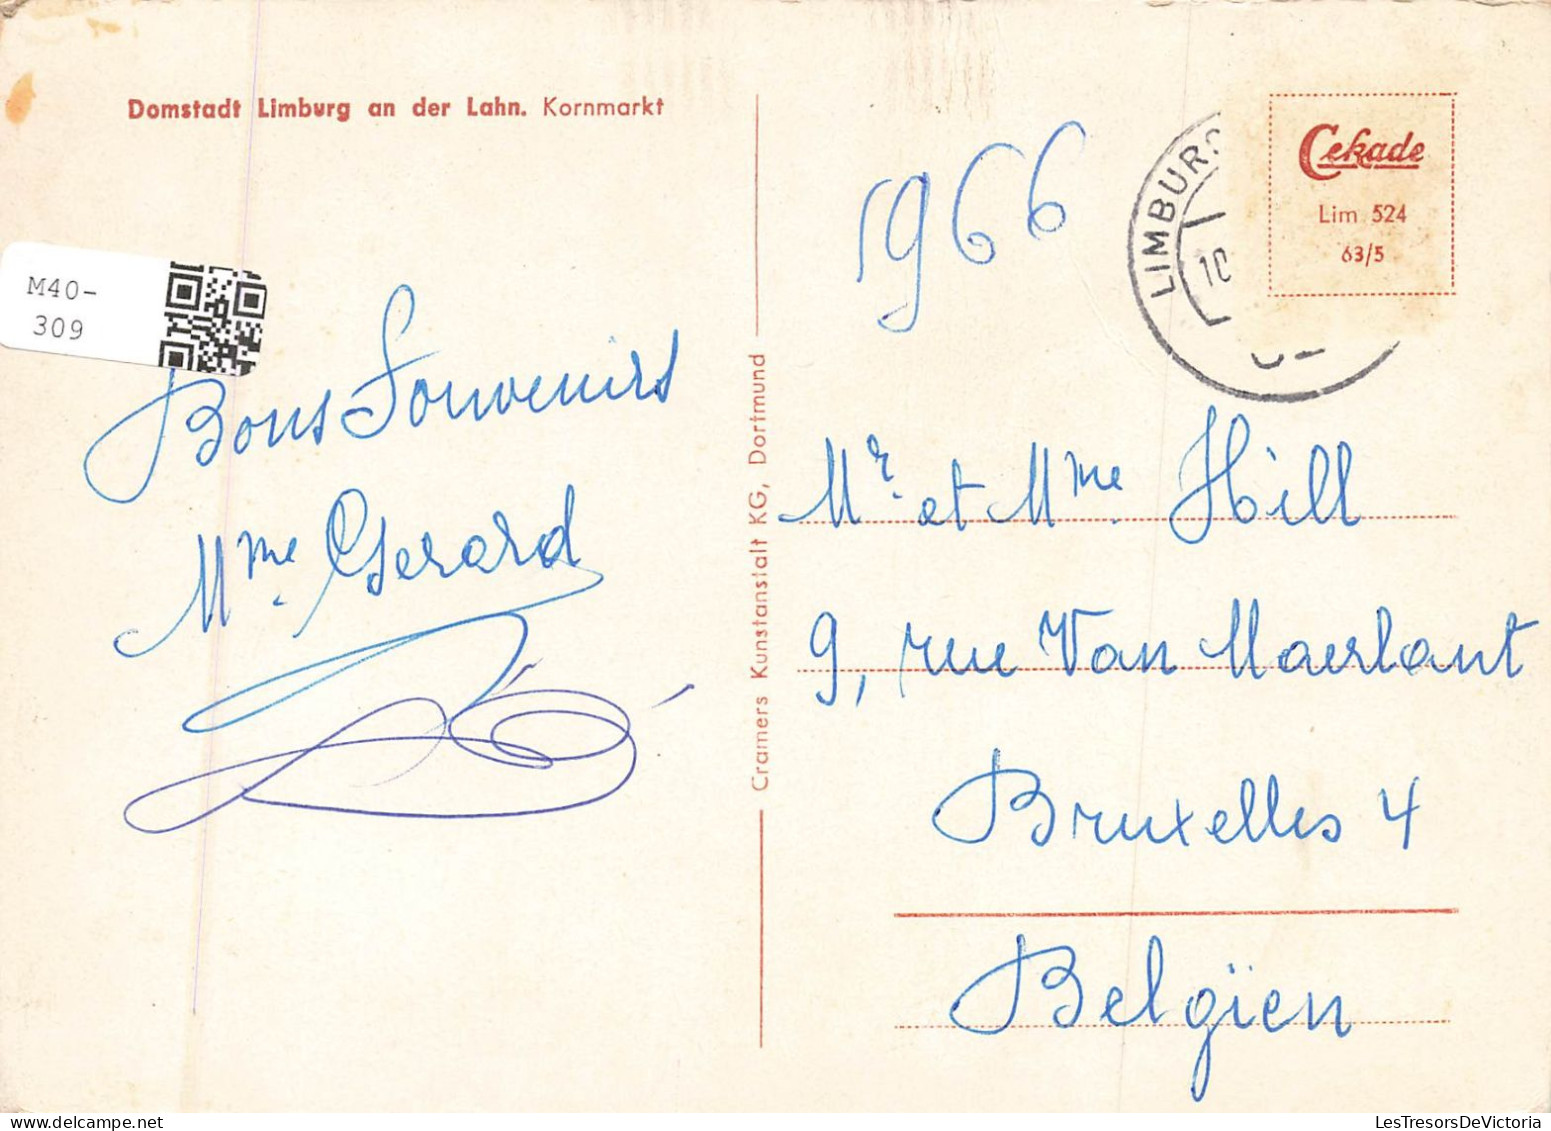 Domstadt Limburg an der Lahn. Kornmarkt
M40-
309
Bons Souvenirs
Mme Gerard
Cramers Kunstanstalt KG, Dortmund
1966
LIMBURG
10
Cekade
Lim 524
63/5
Mr. et Mme. Hill
9, rue Van Maerlant
Bruxelles 4
Belgïen
LesTresorsDeVictoria